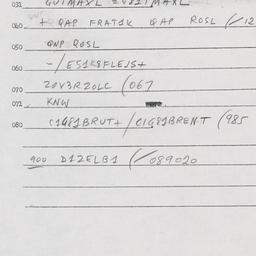 031
040 + QAP FRAT1K QAP ROSL (/12
050 QNP ROSL
060 -/ES1K8FLEJS+
070 20V3R20LC (067
071 KNW
080 C1G81BRUT+/C1G81BRENT (985
900 D12ELB1 (/089020